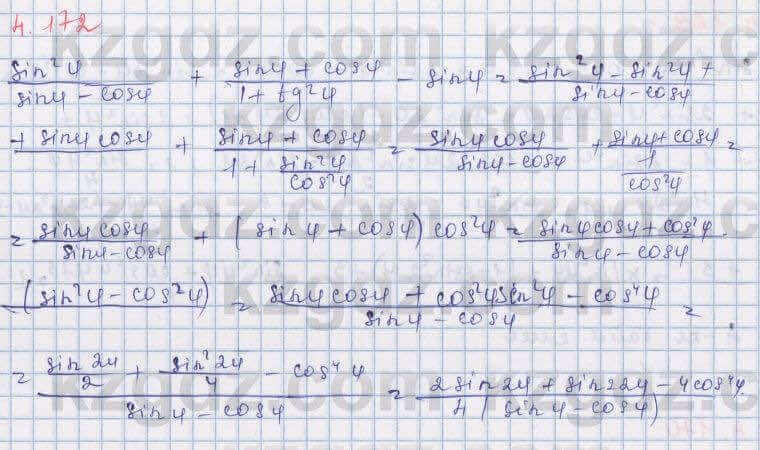 4.172
sin²y/(siny - cosy) + (siny + cosy)/(1 + tg²y) - siny = (sin²y - sin²y +
+ siny cosy)/(siny - cosy) + (siny + cosy)/(1 + sin²y/cos²y) = siny cosy/(siny - cosy) + (siny + cosy)/(1/cos²y) =
= siny cosy/(siny - cosy) + (siny + cosy) cos²y = (siny cosy + cos²y ·
· (sin²y - cos²y))/(siny - cosy) = (siny cosy + cos²y sin²y - cos⁴y)/(siny - cosy) =
= (sin2y/2 + sin²2y/4 - cos⁴y)/(siny - cosy) = (2sin2y + sin²2y - 4cos⁴y)/(4(siny - cosy))
kzgdz.com kzgdz.com